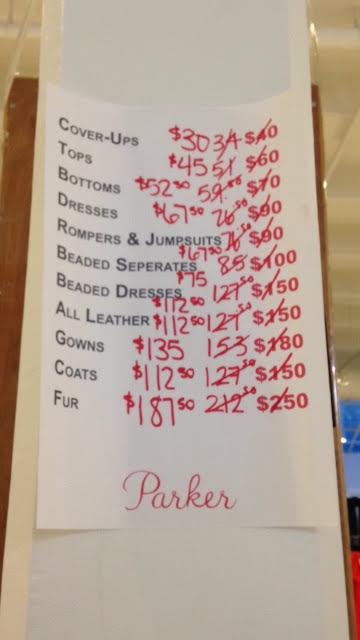 COVER-UPS $30 34 $40
TOPS $45 51 $60
BOTTOMS $52.50 59.50 $70
DRESSES $67.50 76.50 $90
ROMPERS & JUMPSUITS $67.50 76.50 $90
BEADED SEPERATES $75 85 $100
BEADED DRESSES $112.50 127.50 $150
ALL LEATHER $112.50 127.50 $150
GOWNS $135 153 $180
COATS $112.50 127.50 $150
FUR $187.50 212.50 $250
Parker